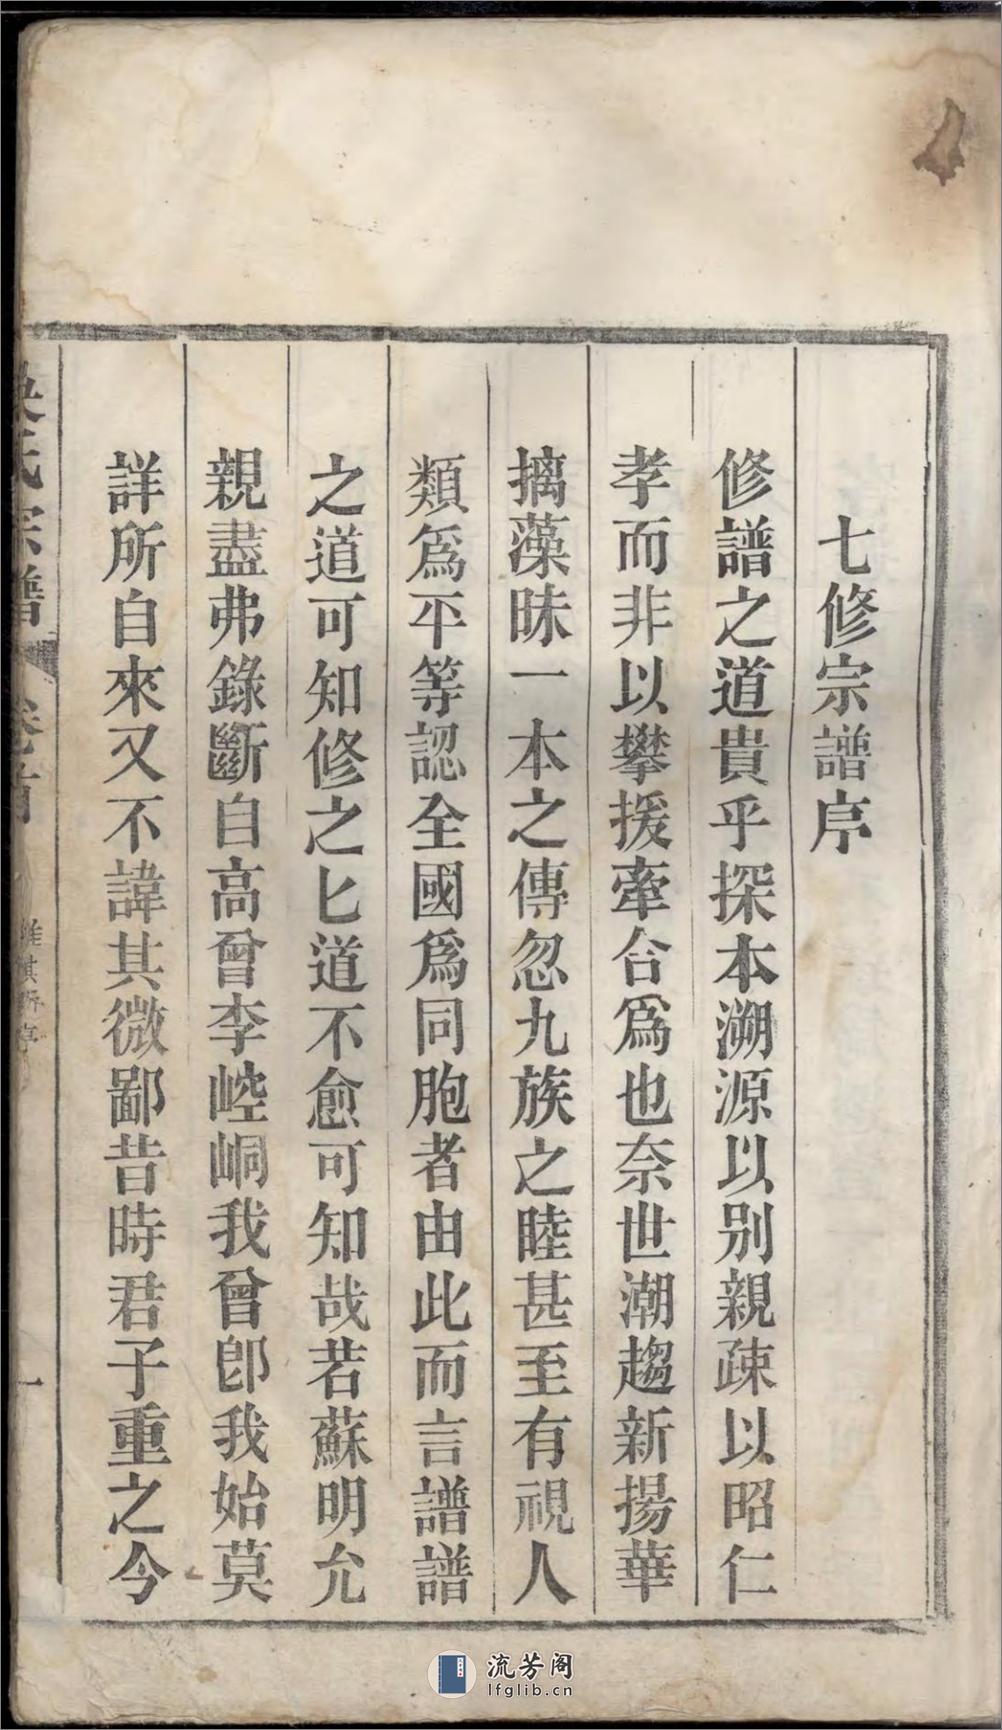 七修宗譜序
修譜之道貴乎探本溯源以别親疎以昭仁
孝而非以攀援牽合爲也奈世潮趨新揚華
摛藻昧一本之傳忽九族之睦甚至有視人
類爲平等認全國爲同胞者由此而言譜譜
之道可知修之匕道不愈可知哉若蘇明允
親盡弗錄斷自高曾李崆峒我曾卽我始莫
詳所自來又不諱其微鄙昔時君子重之今
氏宗譜
一
流芳阁
lfglib.cn